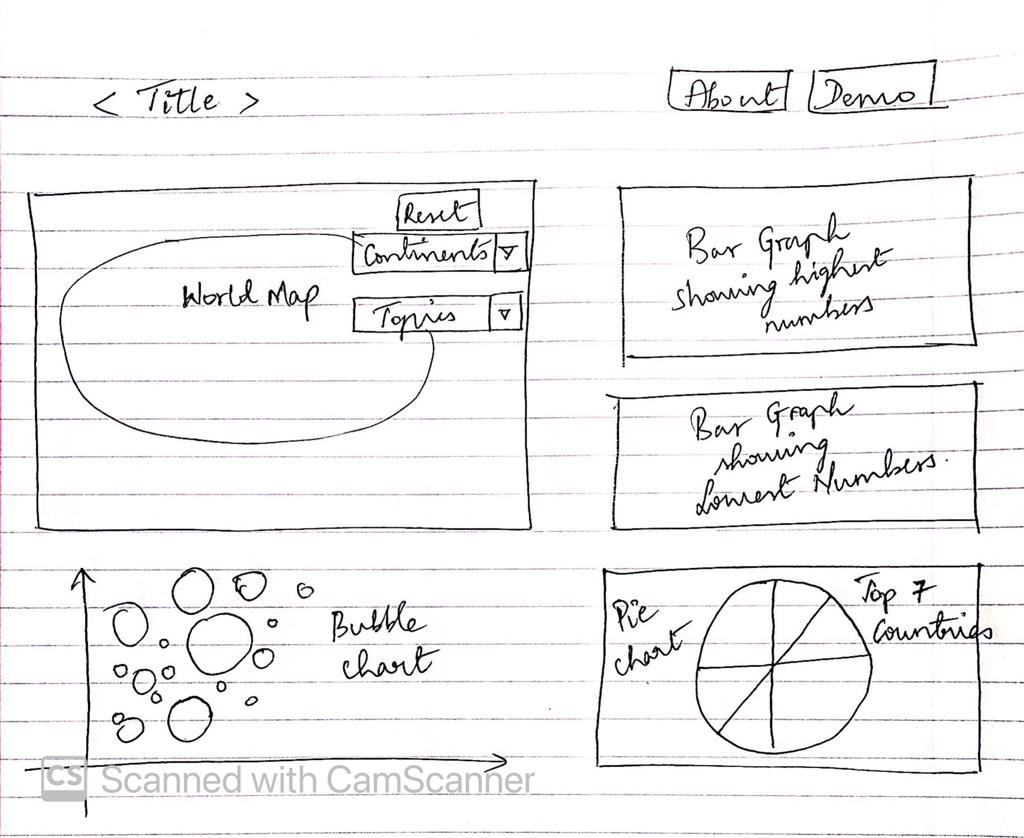 < Title >
About
Demo
Reset
Continents
World Map
Topics
Bar Graph
showing highest
numbers
Bar Graph
showing
Lowest Numbers.
Bubble
chart
Pie
chart
Top 7
Countries
CS Scanned with CamScanner